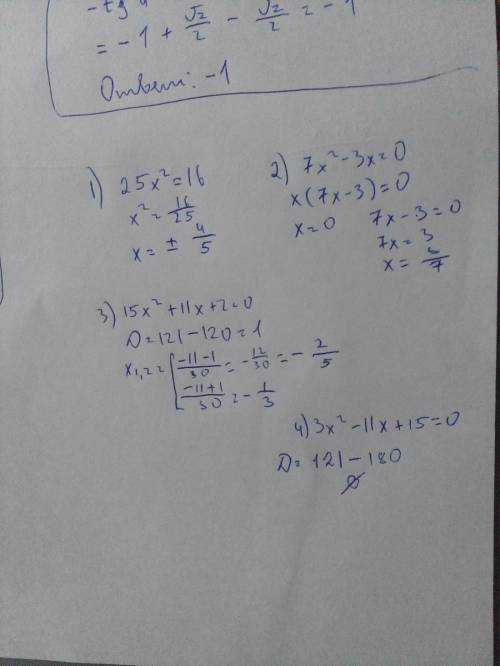 - tg
= -1 + √2/2 - √2/2 = -1
Ответ: -1
1) 25x² = 16
x² = 16/25
x = ± 4/5
2) 7x² - 3x = 0
x(7x - 3) = 0
x = 0 7x - 3 = 0
7x = 3
x = 3/7
3) 15x² + 11x + 2 = 0
D = 121 - 120 = 1
x₁,₂ = [ (-11 - 1)/30 = - 12/30 = - 2/5
(-11 + 1)/30 = - 1/3
4) 3x² - 11x + 15 = 0
D = 121 - 180
∅